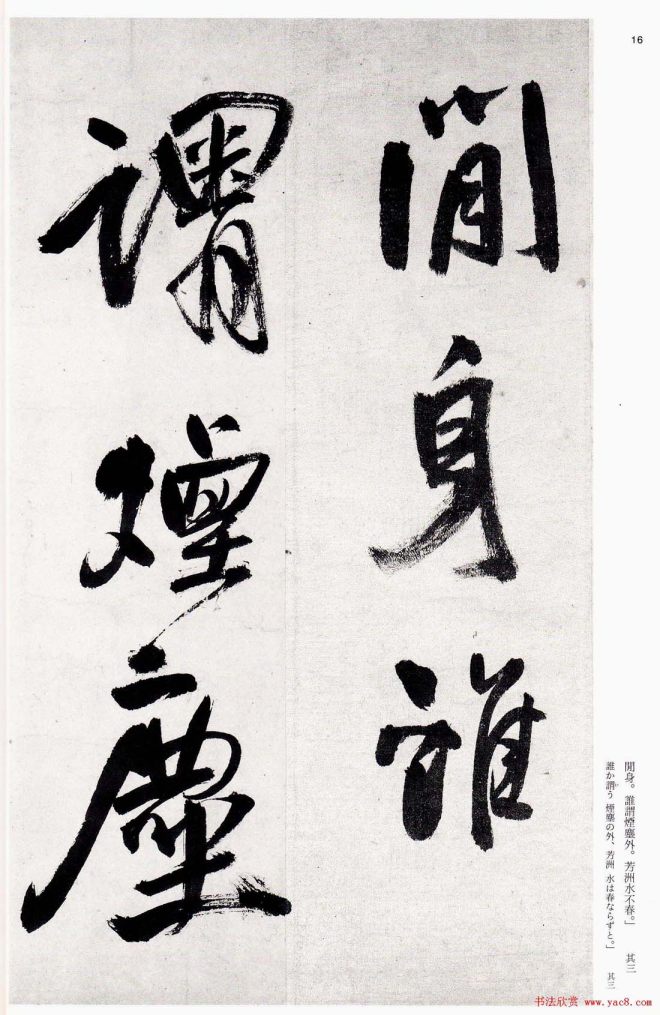 16
閒身誰
謂煙塵
閒身。誰謂煙塵外。芳洲水不春。」 其三
誰か謂う 煙塵の外、芳洲 水は春ならずと。」 其三
书法欣赏 www.yac8.com